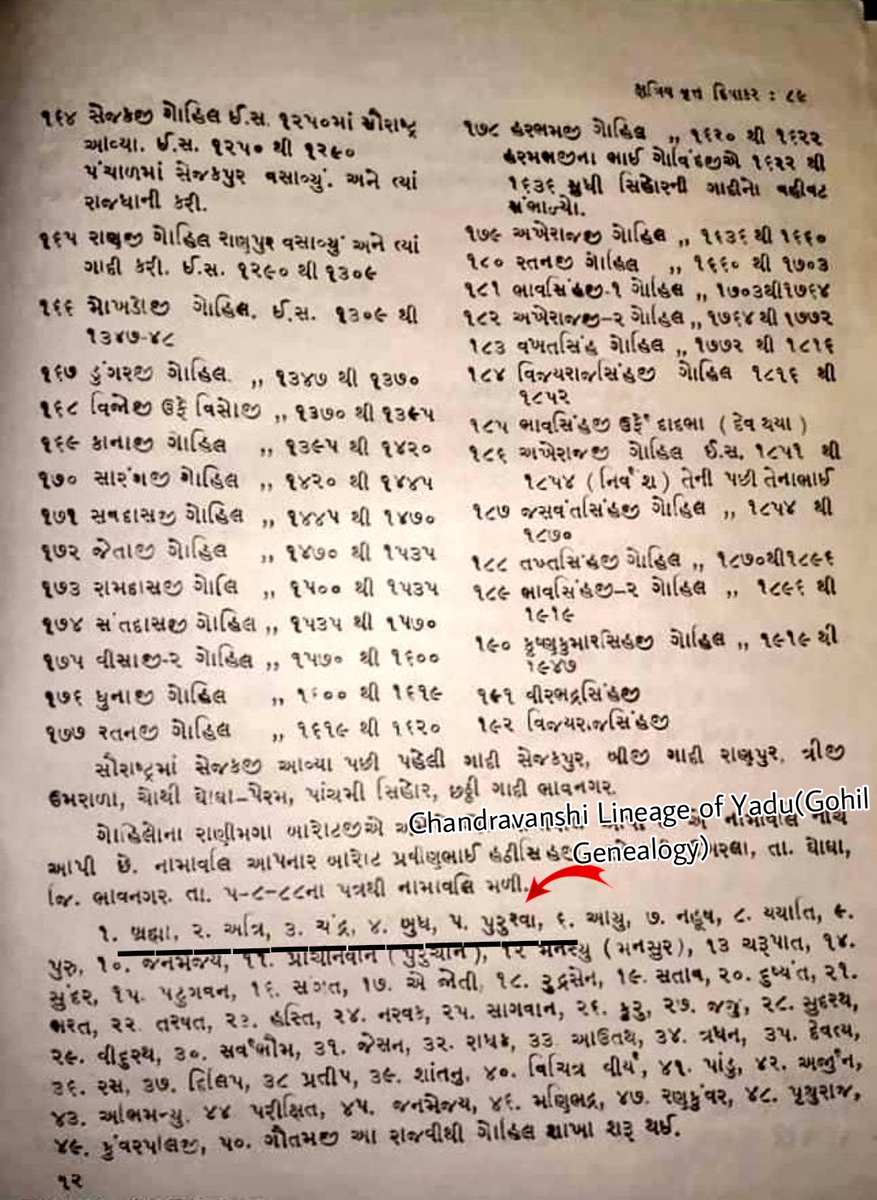 ક્ષત્રિય વૃત્ત દિવાકર : ૮૯
૧૬૪ સેજકજી ગોહિલ ઈ.સ. ૧૨૫૦માં સૌરાષ્ટ્ર
આવ્યા. ઈ.સ. ૧૨૫૦ થી ૧૨૯૦
પંચાળમાં સેજકપુર વસાવ્યું. અને ત્યાં
રાજધાની કરી.
૧૬૫ રાણજી ગોહિલ રાણપુર વસાવ્યું અને ત્યાં
ગાદી કરી. ઈ.સ. ૧૨૯૦ થી ૧૩૦૯
૧૬૬ મોખડાજી ગોહિલ. ઈ.સ. ૧૩૦૯ થી
૧૩૪૭-૪૮
૧૬૭ ડુંગરજી ગોહિલ. ,, ૧૩૪૭ થી ૧૩૭૦
૧૬૮ વિજોજી ઉર્ફે વિસોજી ,, ૧૩૭૦ થી ૧૩૯૫
૧૬૯ કાનાજી ગોહિલ ,, ૧૩૯૫ થી ૧૪૨૦
૧૭૦ સારંગજી ગોહિલ ,, ૧૪૨૦ થી ૧૪૪૫
૧૭૧ સવદાસજી ગોહિલ ,, ૧૪૪૫ થી ૧૪૭૦
૧૭૨ જેતાજી ગોહિલ ,, ૧૪૭૦ થી ૧૫૩૫
૧૭૩ રામદાસજી ગોલિ ,, ૧૫૦૦ થી ૧૫૩૫
૧૭૪ સંતદાસજી ગોહિલ ,, ૧૫૩૫ થી ૧૫૭૦
૧૭૫ વીસાજી-૨ ગોહિલ ,, ૧૫૭૦ થી ૧૬૦૦
૧૭૬ ધુનાજી ગોહિલ ,, ૧૬૦૦ થી ૧૬૧૯
૧૭૭ રતનજી ગોહિલ ,, ૧૬૧૯ થી ૧૬૨૦
૧૭૮ હરભમજી ગોહિલ ,, ૧૬૨૦ થી ૧૬૨૨
હરમભજીના ભાઈ ગોવિંદજીએ ૧૬૨૨ થી
૧૬૩૬ સુધી સિહોરની ગાદીનો વહીવટ
સંભાળ્યો.
૧૭૯ અખેરાજજી ગોહિલ ,, ૧૬૩૬ થી ૧૬૬૦
૧૮૦ રતનજી ગોહિલ ,, ૧૬૬૦ થી ૧૭૦૩
૧૮૧ ભાવસિંહજી-૧ ગોહિલ ,, ૧૭૦૩થી૧૭૬૪
૧૮૨ અખેરાજજી-૨ ગોહિલ ,, ૧૭૬૪ થી ૧૭૭૨
૧૮૩ વખતસિંહ ગોહિલ ,, ૧૭૭૨ થી ૧૮૧૬
૧૮૪ વિજયરાજસિંહજી ગોહિલ ૧૮૧૬ થી
૧૮૫૨
૧૮૫ ભાવસિંહજી ઉર્ફે દાદભા ( દેવ થયા )
૧૮૬ અખેરાજજી ગોહિલ ઈ.સ. ૧૮૫૧ થી
૧૮૫૪ ( નિર્વંશ ) તેની પછી તેનાભાઈ
૧૮૭ જસવંતસિંહજી ગોહિલ ,, ૧૮૫૪ થી
૧૮૭૦
૧૮૮ તખ્તસિંહજી ગોહિલ ,, ૧૮૭૦થી૧૮૯૬
૧૮૯ ભાવસિંહજી-૨ ગોહિલ ,, ૧૮૯૬ થી
૧૯૧૯
૧૯૦ કૃષ્ણકુમારસિંહજી ગોહિલ ,, ૧૯૧૯ થી
૧૯૪૭
૧૯૧ વીરભદ્રસિંહજી
૧૯૨ વિજયરાજસિંહજી
સૌરાષ્ટ્રમાં સેજકજી આવ્યા પછી પહેલી ગાદી સેજકપુર, બીજી ગાદી રાણપુર, ત્રીજી
ઉમરાળા, ચોથી ઘોઘા-પેરમ, પાંચમી સિહોર, છઠ્ઠી ગાદી ભાવનગર.
Chandravanshi Lineage of Yadu(Gohil
Genealogy)
ગોહિલોના રાણીમગા બારોટજીએ નામાવલિ નીચે
આપી છે. નામાવલિ આપનાર બારોટ પ્રવીણભાઈ તા. ઘોઘા,
જિ. ભાવનગર. તા. ૫-૮-૮૮ના પત્રથી નામાવલિ મળી.
૧. બ્રહ્મા, ૨. અત્રિ, ૩. ચંદ્ર, ૪. બુધ, ૫. પુરુરવા, ૬. આયુ, ૭. નહૂષ, ૮. યયાતિ, ૯.
પુરુ, ૧૦. જનમેજય, ૧૧. પ્રાચીનવાન (પુરુચાન), ૧૨ મનસ્યુ (મનસુર), ૧૩ ચરૂપાત, ૧૪.
સુંદર, ૧૫. પટુગવન, ૧૬. સંગત, ૧૭. એ જોતી, ૧૮. રુદ્રસેન, ૧૯. સતાવ, ૨૦. દુષ્યંત, ૨૧.
ભરત, ૨૨. તરપત, ૨૩. હસ્તિ, ૨૪. નરવક, ૨૫. સાગવાન, ૨૬. કુરુ, ૨૭. જજુ, ૨૮. સુદરથ,
૨૯. વીદુરથ, ૩૦. સર્વભૌમ, ૩૧. જેસન, ૩૨. રાધક, ૩૩ આઉતથ, ૩૪. ત્રધન, ૩૫. દેવત્ય,
૩૬. રસ, ૩૭. દિલિપ, ૩૮ પ્રતીપ, ૩૯. શાંતનુ, ૪૦. વિચિત્ર વીર્ય, ૪૧. પાંડુ, ૪૨. અર્જુન,
૪૩. અભિમન્યુ. ૪૪ પરીક્ષિત, ૪૫. જનમેજય, ૪૬. મણિભદ્ર, ૪૭. રણકુંવર, ૪૮. પૃથુરાજ,
૪૯. કુંવરપાલજી, ૫૦. ગૌતમજી આ રાજવીથી ગોહિલ શાખા શરૂ થઈ.
૧૨